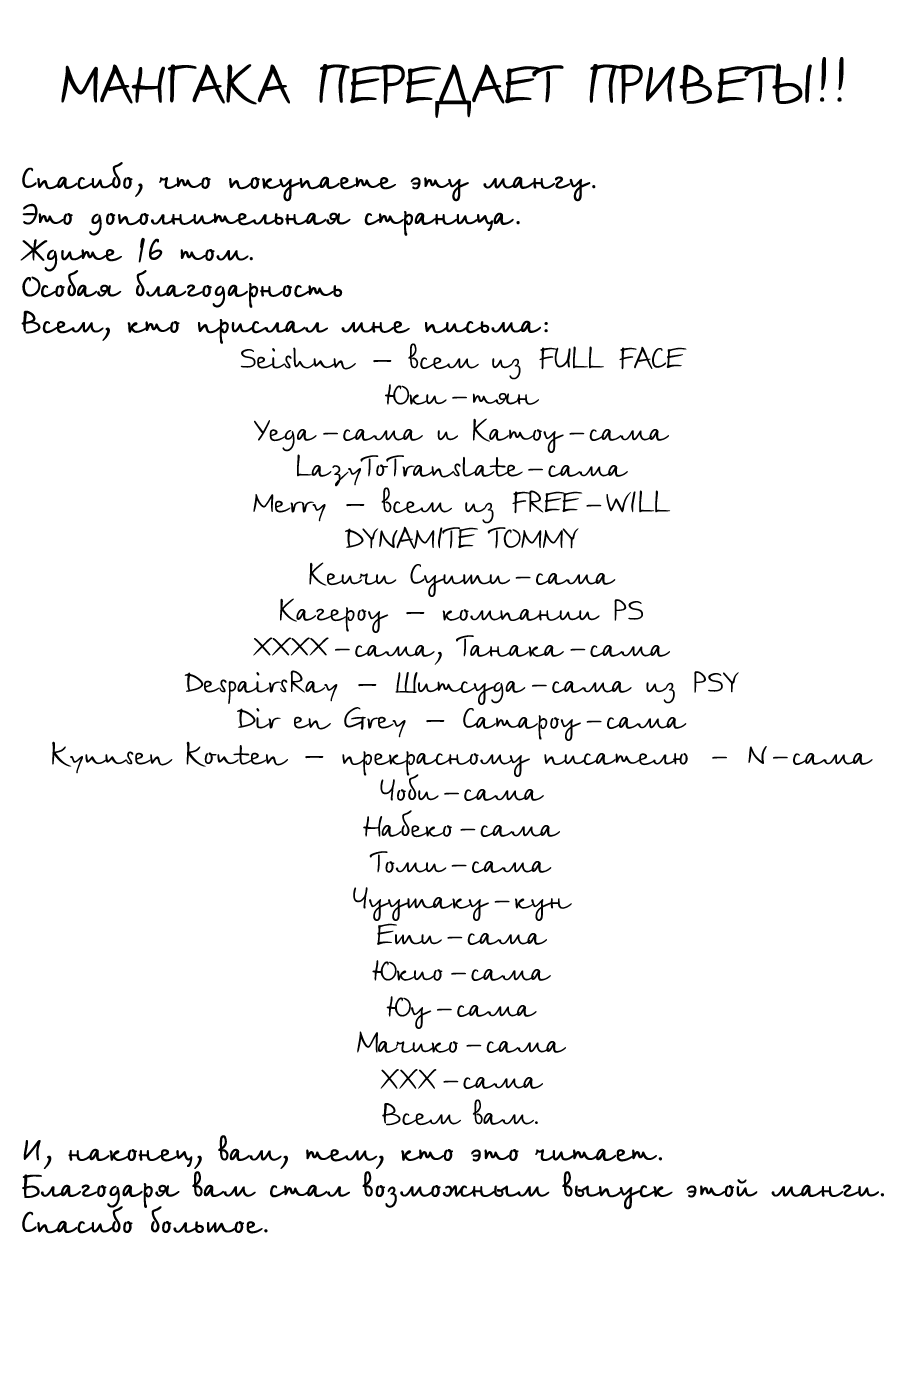 МАНГАКА ПЕРЕДАЕТ ПРИВЕТЫ!!
Спасибо, что покупаете эту мангу.
Это дополнительная страница.
Ждите 16 том.
Особая благодарность
Всем, кто прислал мне письма:
Seishun – всем из FULL FACE
Юки-тян
Уеда-сама и Катоу-сама
LazyToTranslate-сама
Merry – всем из FREE-WILL
DYNAMITE TOMMY
Кеичи Суити-сама
Кагероу – компании PS
XXXX-сама, Танака-сама
DespairsRay – Шитсуда-сама из PSY
Dir en Grey – Сатароу-сама
Kyuusen Kouten – прекрасному писателю - N-сама
Чоби-сама
Набеко-сама
Томи-сама
Чуутаку-кун
Ети-сама
Юкио-сама
Юу-сама
Мачико-сама
XXX-сама
Всем вам.
И, наконец, вам, тем, кто это читает.
Благодаря вам стал возможным выпуск этой манги.
Спасибо большое.